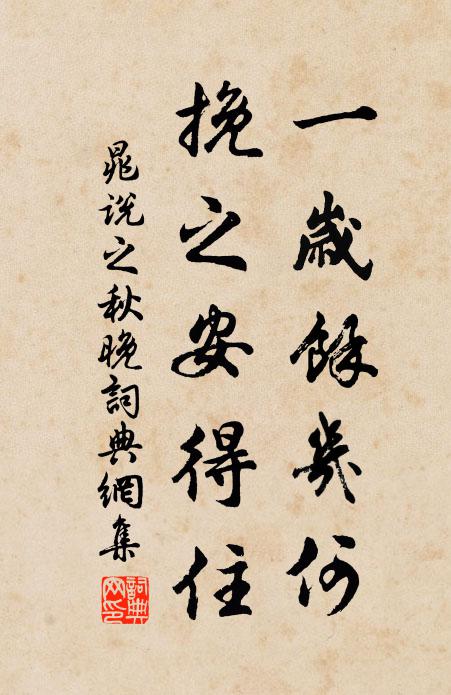 一歲餘幾何
挽之安得住
晁說之秋晚詞典網集
詞典網印